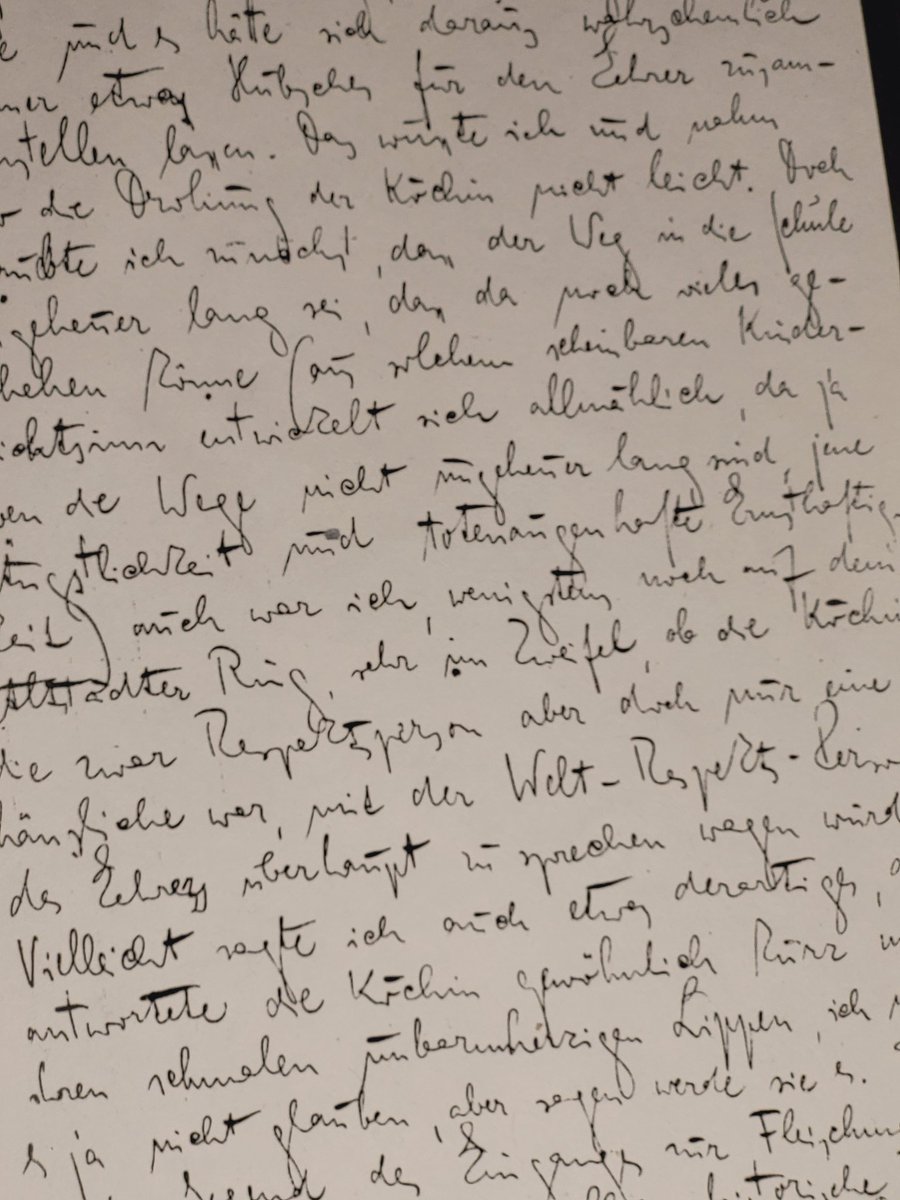 und es hätte sich daraus wahrscheinlich
mer etwas Hübsches für den Lehrer zusam-
nstellen lassen. Das wusste ich und nahm
die Drohung der Köchin nicht leicht. Doch
ubte ich zunächst, dass der Weg in die Schule
geheuer lang sei, dass da noch vieles ge-
hehen könne (aus solchem scheinbaren Kinder-
ichtsinn entwickelt sich allmählich, da ja
ben die Wege nicht ungeheuer lang sind, jene
Ängstlichkeit und totenaugenhafte Ernsthaftig-
keit) auch war ich, wenigstens noch auf dem
Altstädter Ring, sehr im Zweifel, ob die Köchin
die zwar Respektsperson aber doch nur eine
häusliche war, mit der Welt-Respekts-Person
des Lehrers überhaupt zu sprechen wagen würde
Vielleicht sagte ich auch etwas derartiges,
antwortete die Köchin gewöhnlich kurz
ihren schmalen unbarmherzigen Lippen, ich
es ja nicht glauben, aber sagen werde sie es.
Gegend des Einganges zur Fleischm
historische